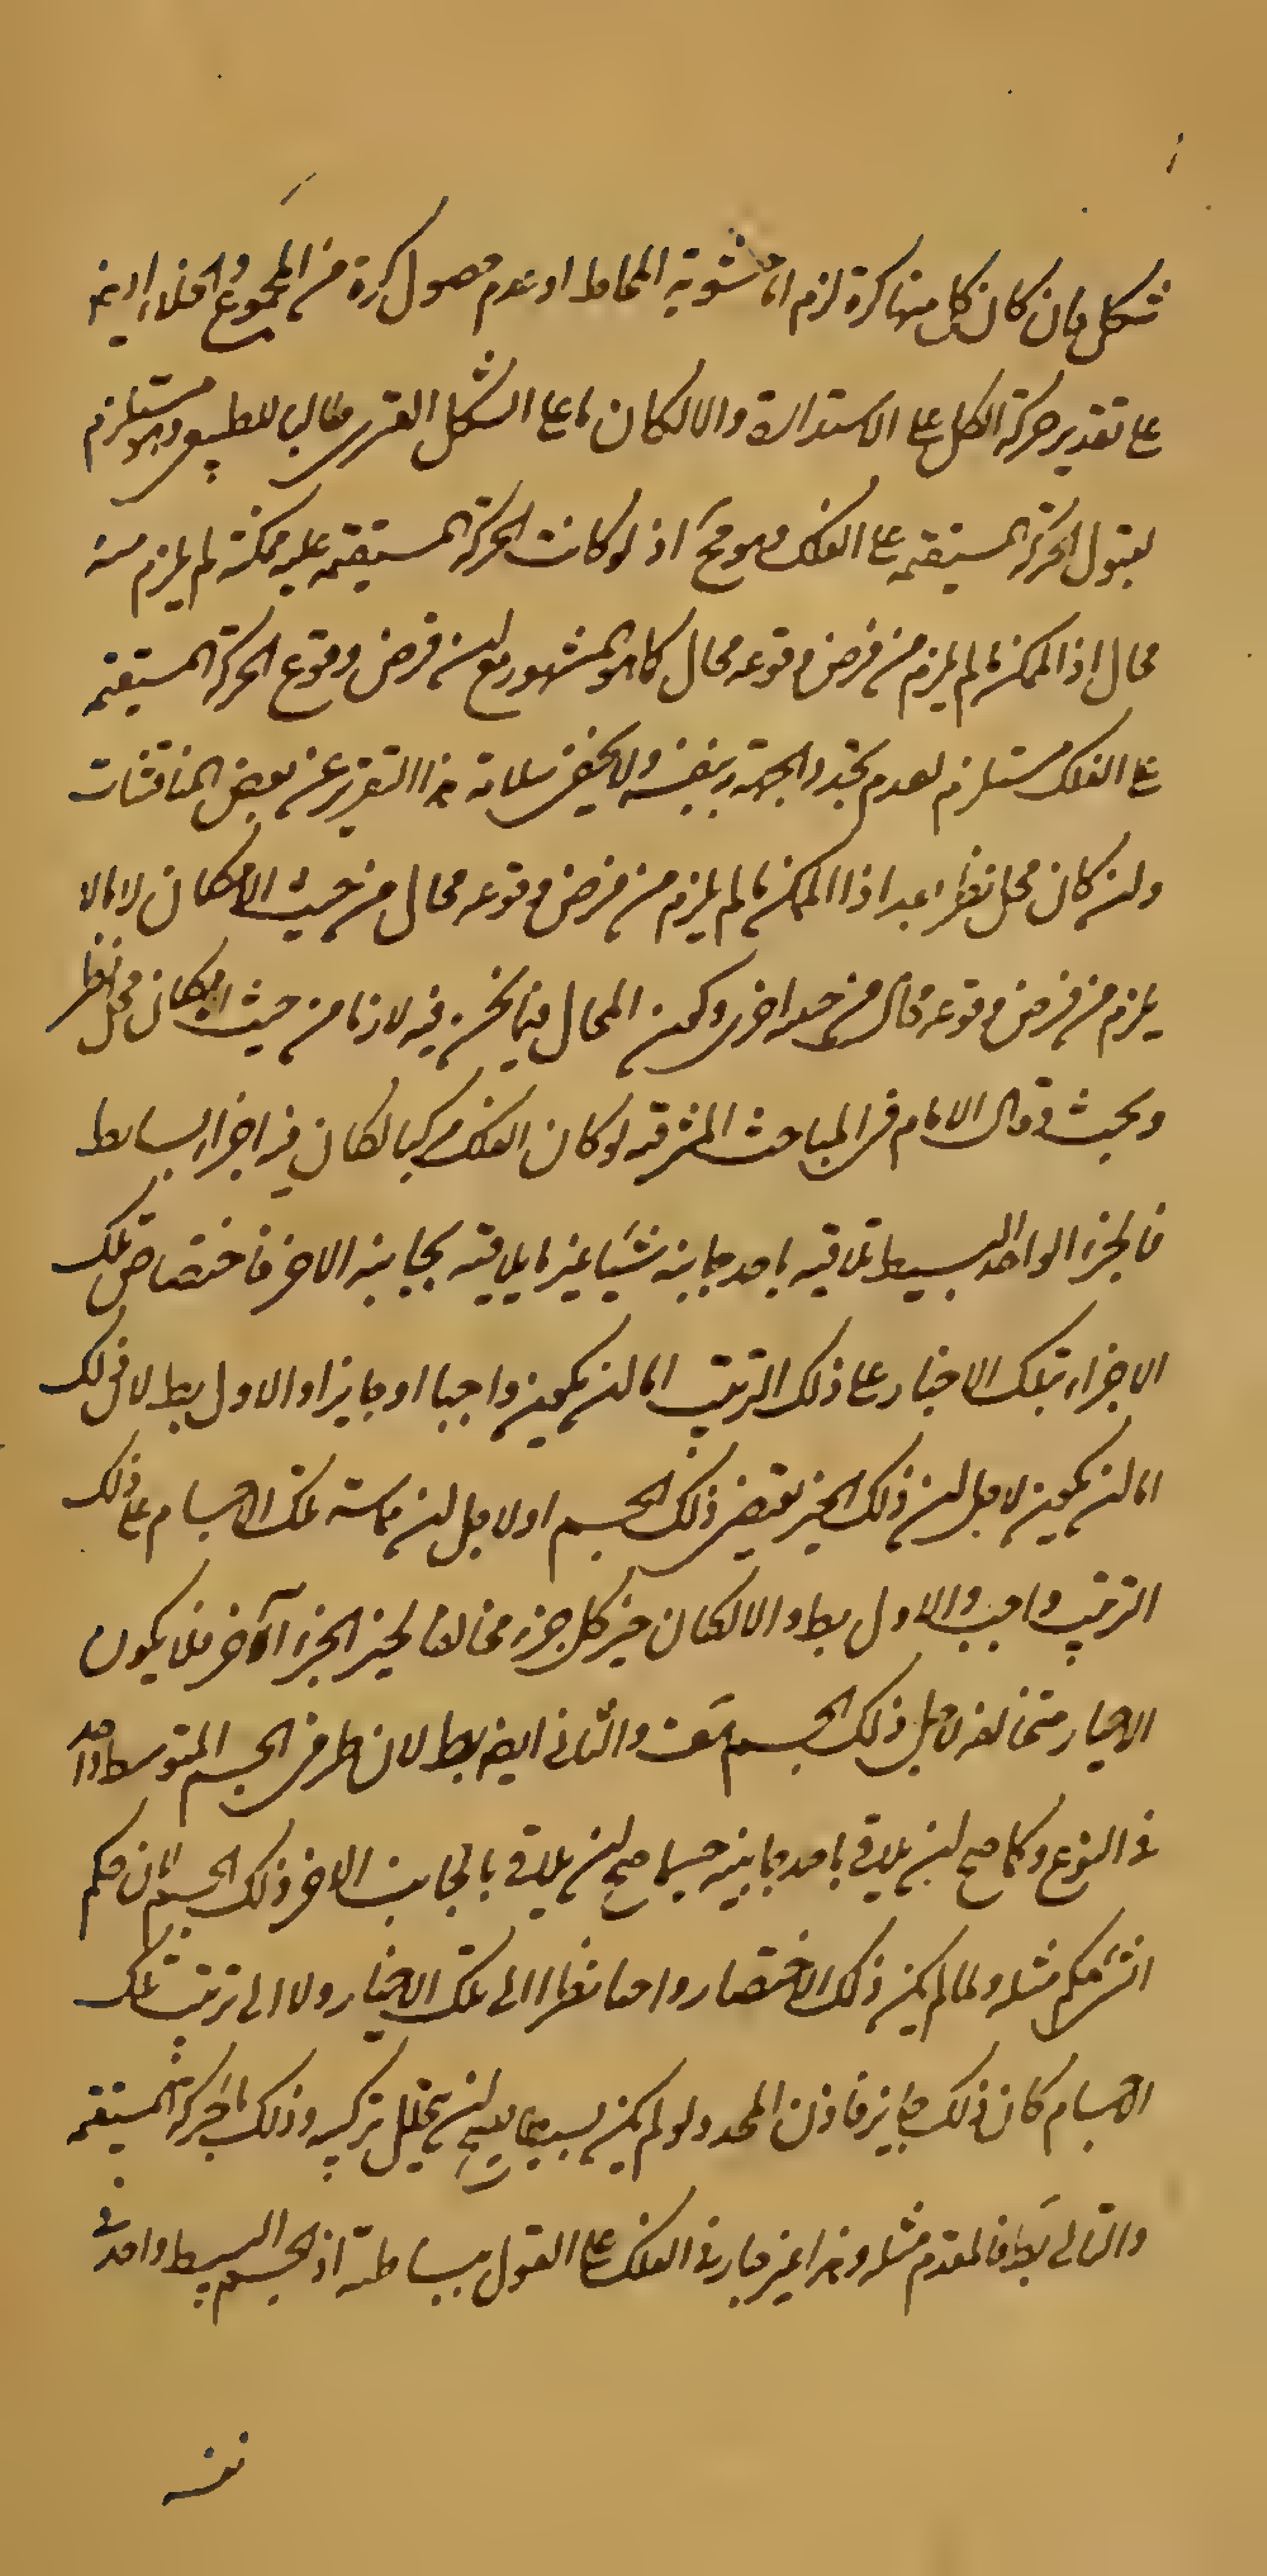 شكل فان كان كل منها كرة لزم اما مثنوية المحاط او عدم حصول كرة من المجموع والخلاء اللازم
على تقدير حركة الكل على الاستدارة والا لكان ما على الشكل القسرى طالب للطبيعى وهو مستلزم
لقبول الحركة المستقيمة على الفلك وهو مح اذ لو كانت الحركة المستقيمة عليه ممكنة لم يلزم منه
محال اذ الممكن ما لم يلزم من فرض وقوعه محال كما هو المشهور مع ان فرض وقوع الحركة المستقيمة
على الفلك مستلزم لعدم تحدد الجهة بنفسه ولا يخفى سلامة هذا التقرير عن بعض المناقشات
وان كان محل نظر بعد اذا الممكن ما لم يلزم من فرض وقوعه محال من حيث الامكان لا ما لا
يلزم من فرض وقوعه محال من جهة اخرى وكون المحال فيما نحن فيه لازما من حيث الامكان محل نظر
وبحث وقال الامام فى المباحث المشرقية لو كان الفلك مركبا لكان فيه اجزاء بسايط
فالجزء الواحد البسيط تلاقيه باحد جانبيه شيا غير ما يلاقيه بجانبه الاخر فاختصاص تلك
الاجزاء بتلك الاحياز على ذلك الترتيب اما ان يكون واجبا او جايزا والاول بط لان ذلك
اما ان يكون لاجل ان ذلك الحيز يقتضى ذلك الجسم او لاجل ان مماسة تلك الاجسام على ذلك
الترتيب واجب والاول بط والا لكان حيز كل جزء مخالفا لحيز الجزء الآخر فلا يكون
الاحياز متخالفه قبل ذلك الجسم هف والثانى ايضا بط لان طرفى الجسم المتوسط واحد
فى النوع وكما صح ان يلاقى باحد جانبيه جسما صح ان يلاقى بالجانب الاخر ذلك الجسم لان حكم
الشئ حكم مثله ولما لم يكن ذلك الاختصار واجبا نظرا الى تلك الاحياز ولا الى ترتيب تلك
الاجسام كان ذلك جايز فاذن المحدد لو لم يكن بسيطا يصح ان يتحلل تركيبه وذلك بالحركة المستقيمة
والتالى بط فالمقدم مثله وهذا غير جار فى الفلك على القول ببساطته اذ الجسم البسيط واحد فى
نفسه